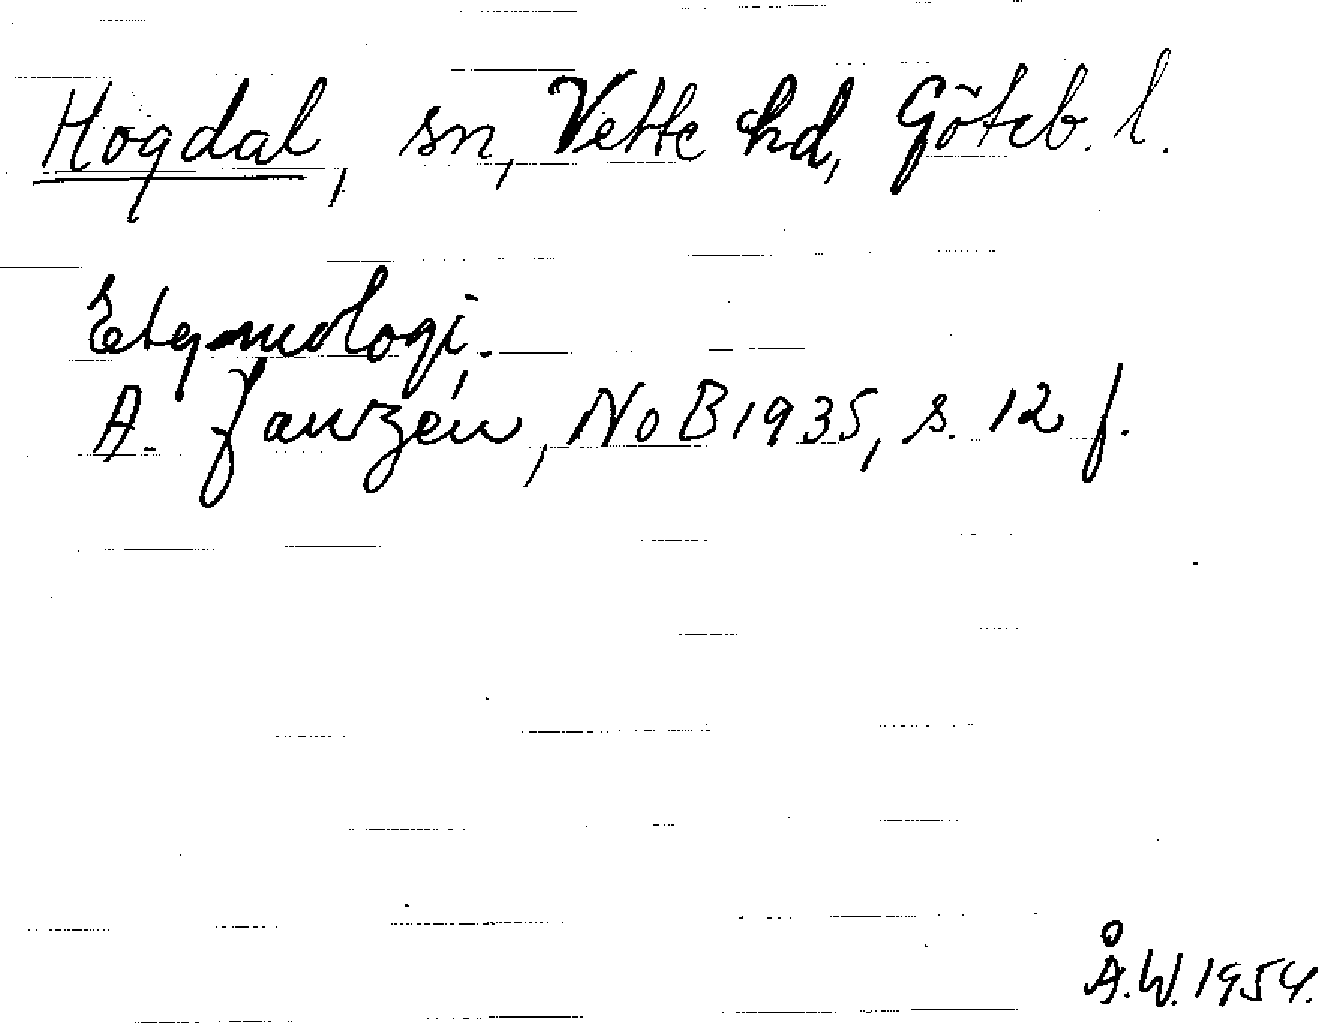 Hogdal, sn, Vette hd, Göteb. l.
Etymologi.
A. Janzén, NoB 1935, s. 12 f.
Å.W. 1954.